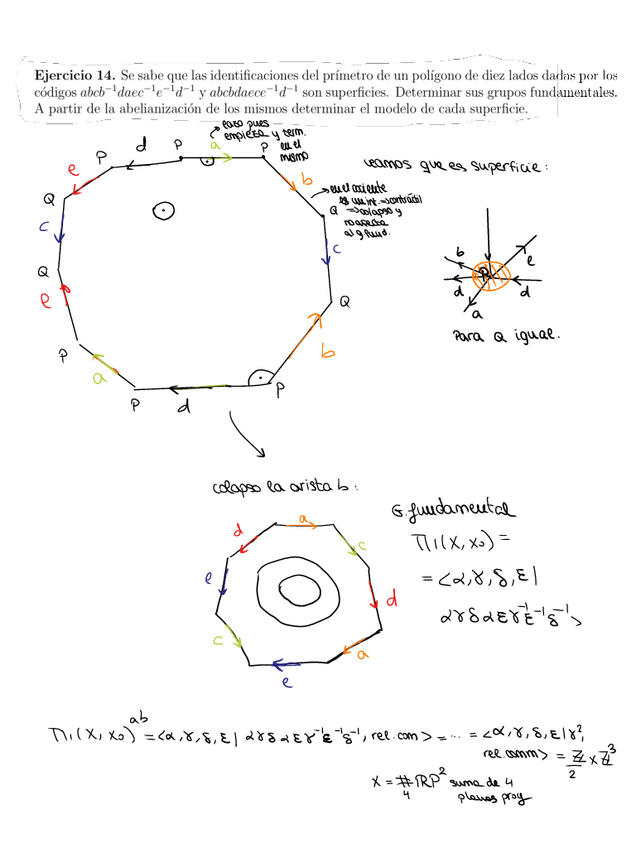 Ejercicio 14. Se sabe que las identificaciones del prímetro de un polígono de diez lados dadas por los
códigos abcb⁻¹daec⁻¹e⁻¹d⁻¹ y abcbdaece⁻¹d⁻¹ son superficies. Determinar sus grupos fundamentales.
A partir de la abelianización de los mismos determinar el modelo de cada superficie.
lazo pues
empieza y term.
en el
mismo
d
P
a
P
P
e
b
Q
c
Q
e
P
a
P
d
P
b
Q
c
Q
en el cociente
es un int. → contráctil
⇒ colapso y
no afecta
al g fund.
veamos que es superficie:
b
e
P
d
d
a
Para Q igual.
colapso la arista b:
a
d
c
e
d
c
a
e
G. fundamental
Π₁(X, x₀) =
= <α, γ, δ, ε |
αγδαεγ⁻¹ε⁻¹δ⁻¹>
Π₁(X, x₀)ᵃᵇ = <α, γ, δ, ε | αγδαεγ⁻¹ε⁻¹δ⁻¹, rel. com > = ... = <α, γ, δ, ε | γ²,
rel. comm> = ℤ/2 × ℤ³
X = #₄ ℝP² suma de 4
planos proy